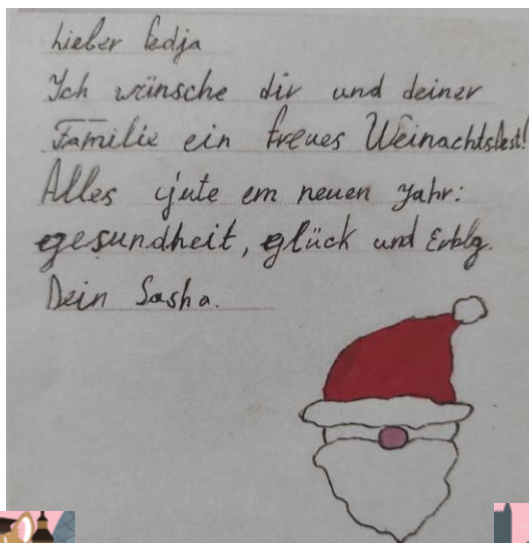 Lieber Fedja
Ich wünsche dir und deiner
Familie ein freues Weinachtsfest!
Alles gute em neuen Jahr:
gesundheit, glück und Erfolg.
Dein Sasha.